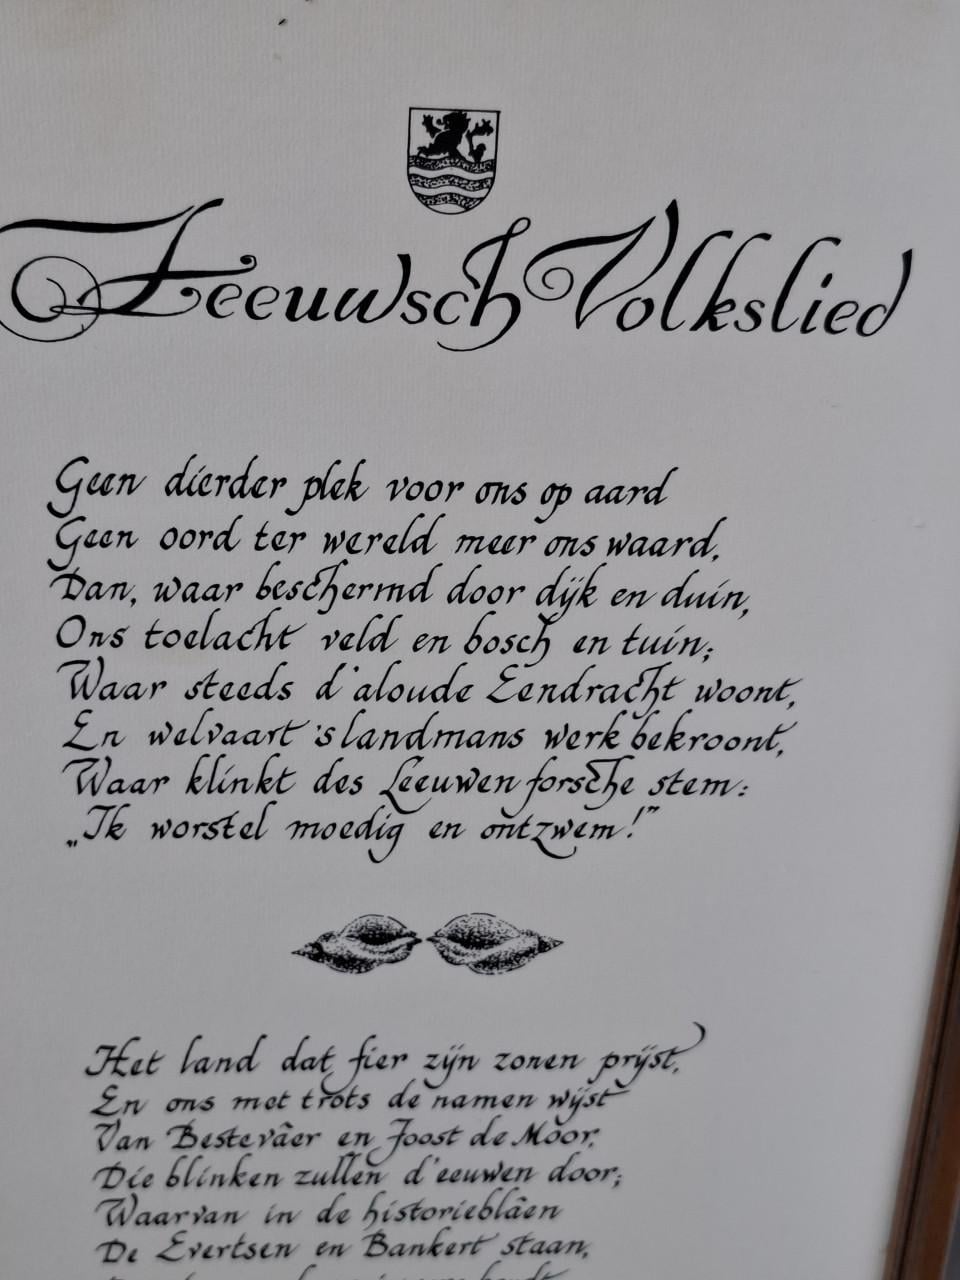 Zeeuwsch Volkslied
Geen dierder plek voor ons op aard
Geen oord ter wereld meer ons waard,
Dan, waar beschermd door dijk en duin,
Ons toelacht veld en bosch en tuin;
Waar steeds d'aloude Eendracht woont,
En welvaart 's landmans werk bekroont,
Waar klinkt des Leeuwen forsche stem:
„Ik worstel moedig en ontzwem!”
Het land dat fier zijn zonen prijst,
En ons met trots de namen wijst
Van Bestevâer en Joost de Moor,
Die blinken zullen d'eeuwen door;
Waarvan in de historieblâen
De Evertsen en Bankert staan,